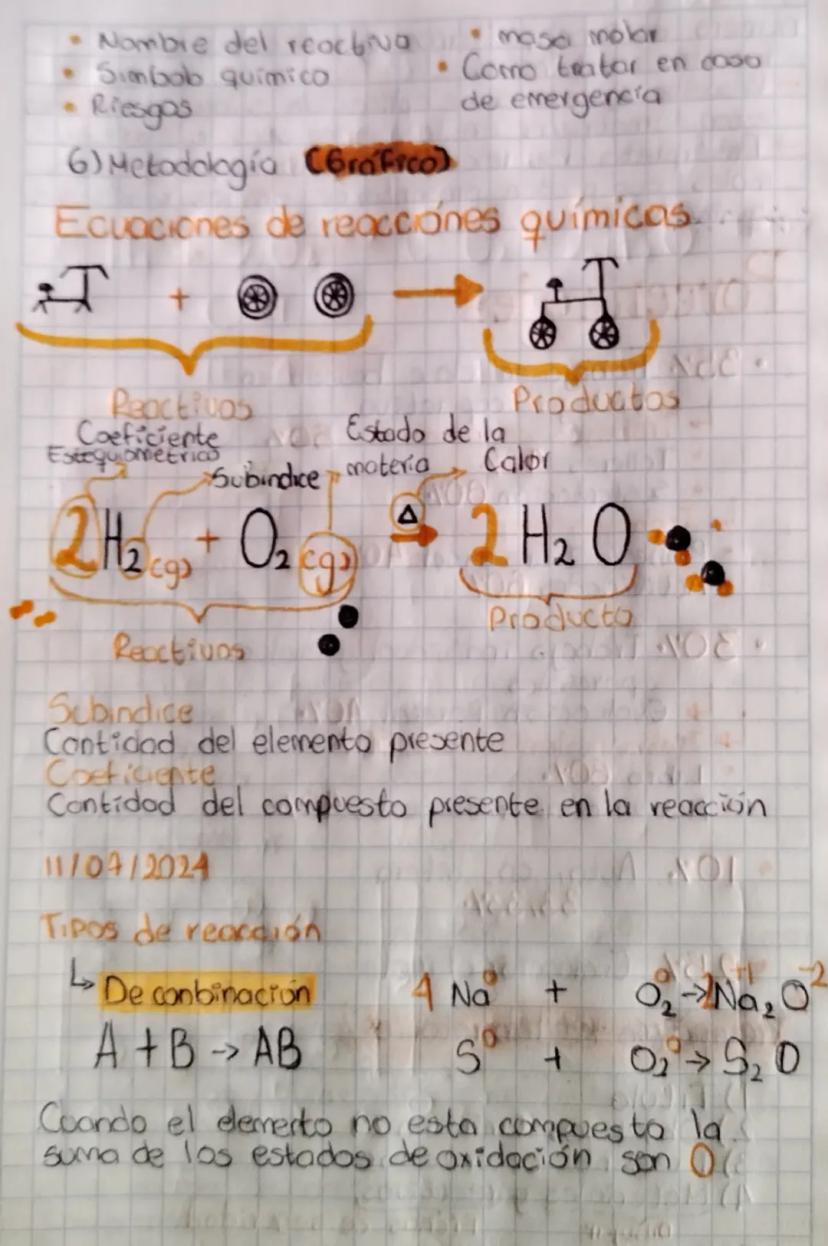 • Nombre del reactivo
• Simbolo químico
• Riesgos
• masa molar
• Como tratar en caso
de emergencia
6) Metodología (Gráfico)
Ecuaciones de reacciónes químicas
+ →
Reactivos
Productos
Coeficiente
Estequiométrico
Subindice
Estado de la
materia
Calor
2H₂(g) + O₂(g) Δ→ 2H₂O
Reactivos
Producto
Subindice
Cantidad del elemento presente
Coeficiente
Cantidad del compuesto presente en la reacción
11/07/2024
Tipos de reacción
↳ De conbinación
A + B → AB
4 Na⁰ + O₂⁰ → 2Na₂⁺¹O⁻²
S⁰ + O₂⁰ → S₂O
Cuando el elemento no esta compuesto la
suma de los estados de oxidación son 0